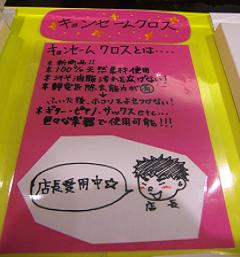 キョンセームクロス
キョンセームクロスとは‥‥
* 新商品!!
* 100%天然素材使用
* コイヤ油脂汚れを広げない!
* 静電気除去能力が有
↓
ふいた後、ホコリをよせつけない!
* ギター・ピアノ・サックスetc...
色々な楽器で使用可能!!!
店長愛用中☆
店長